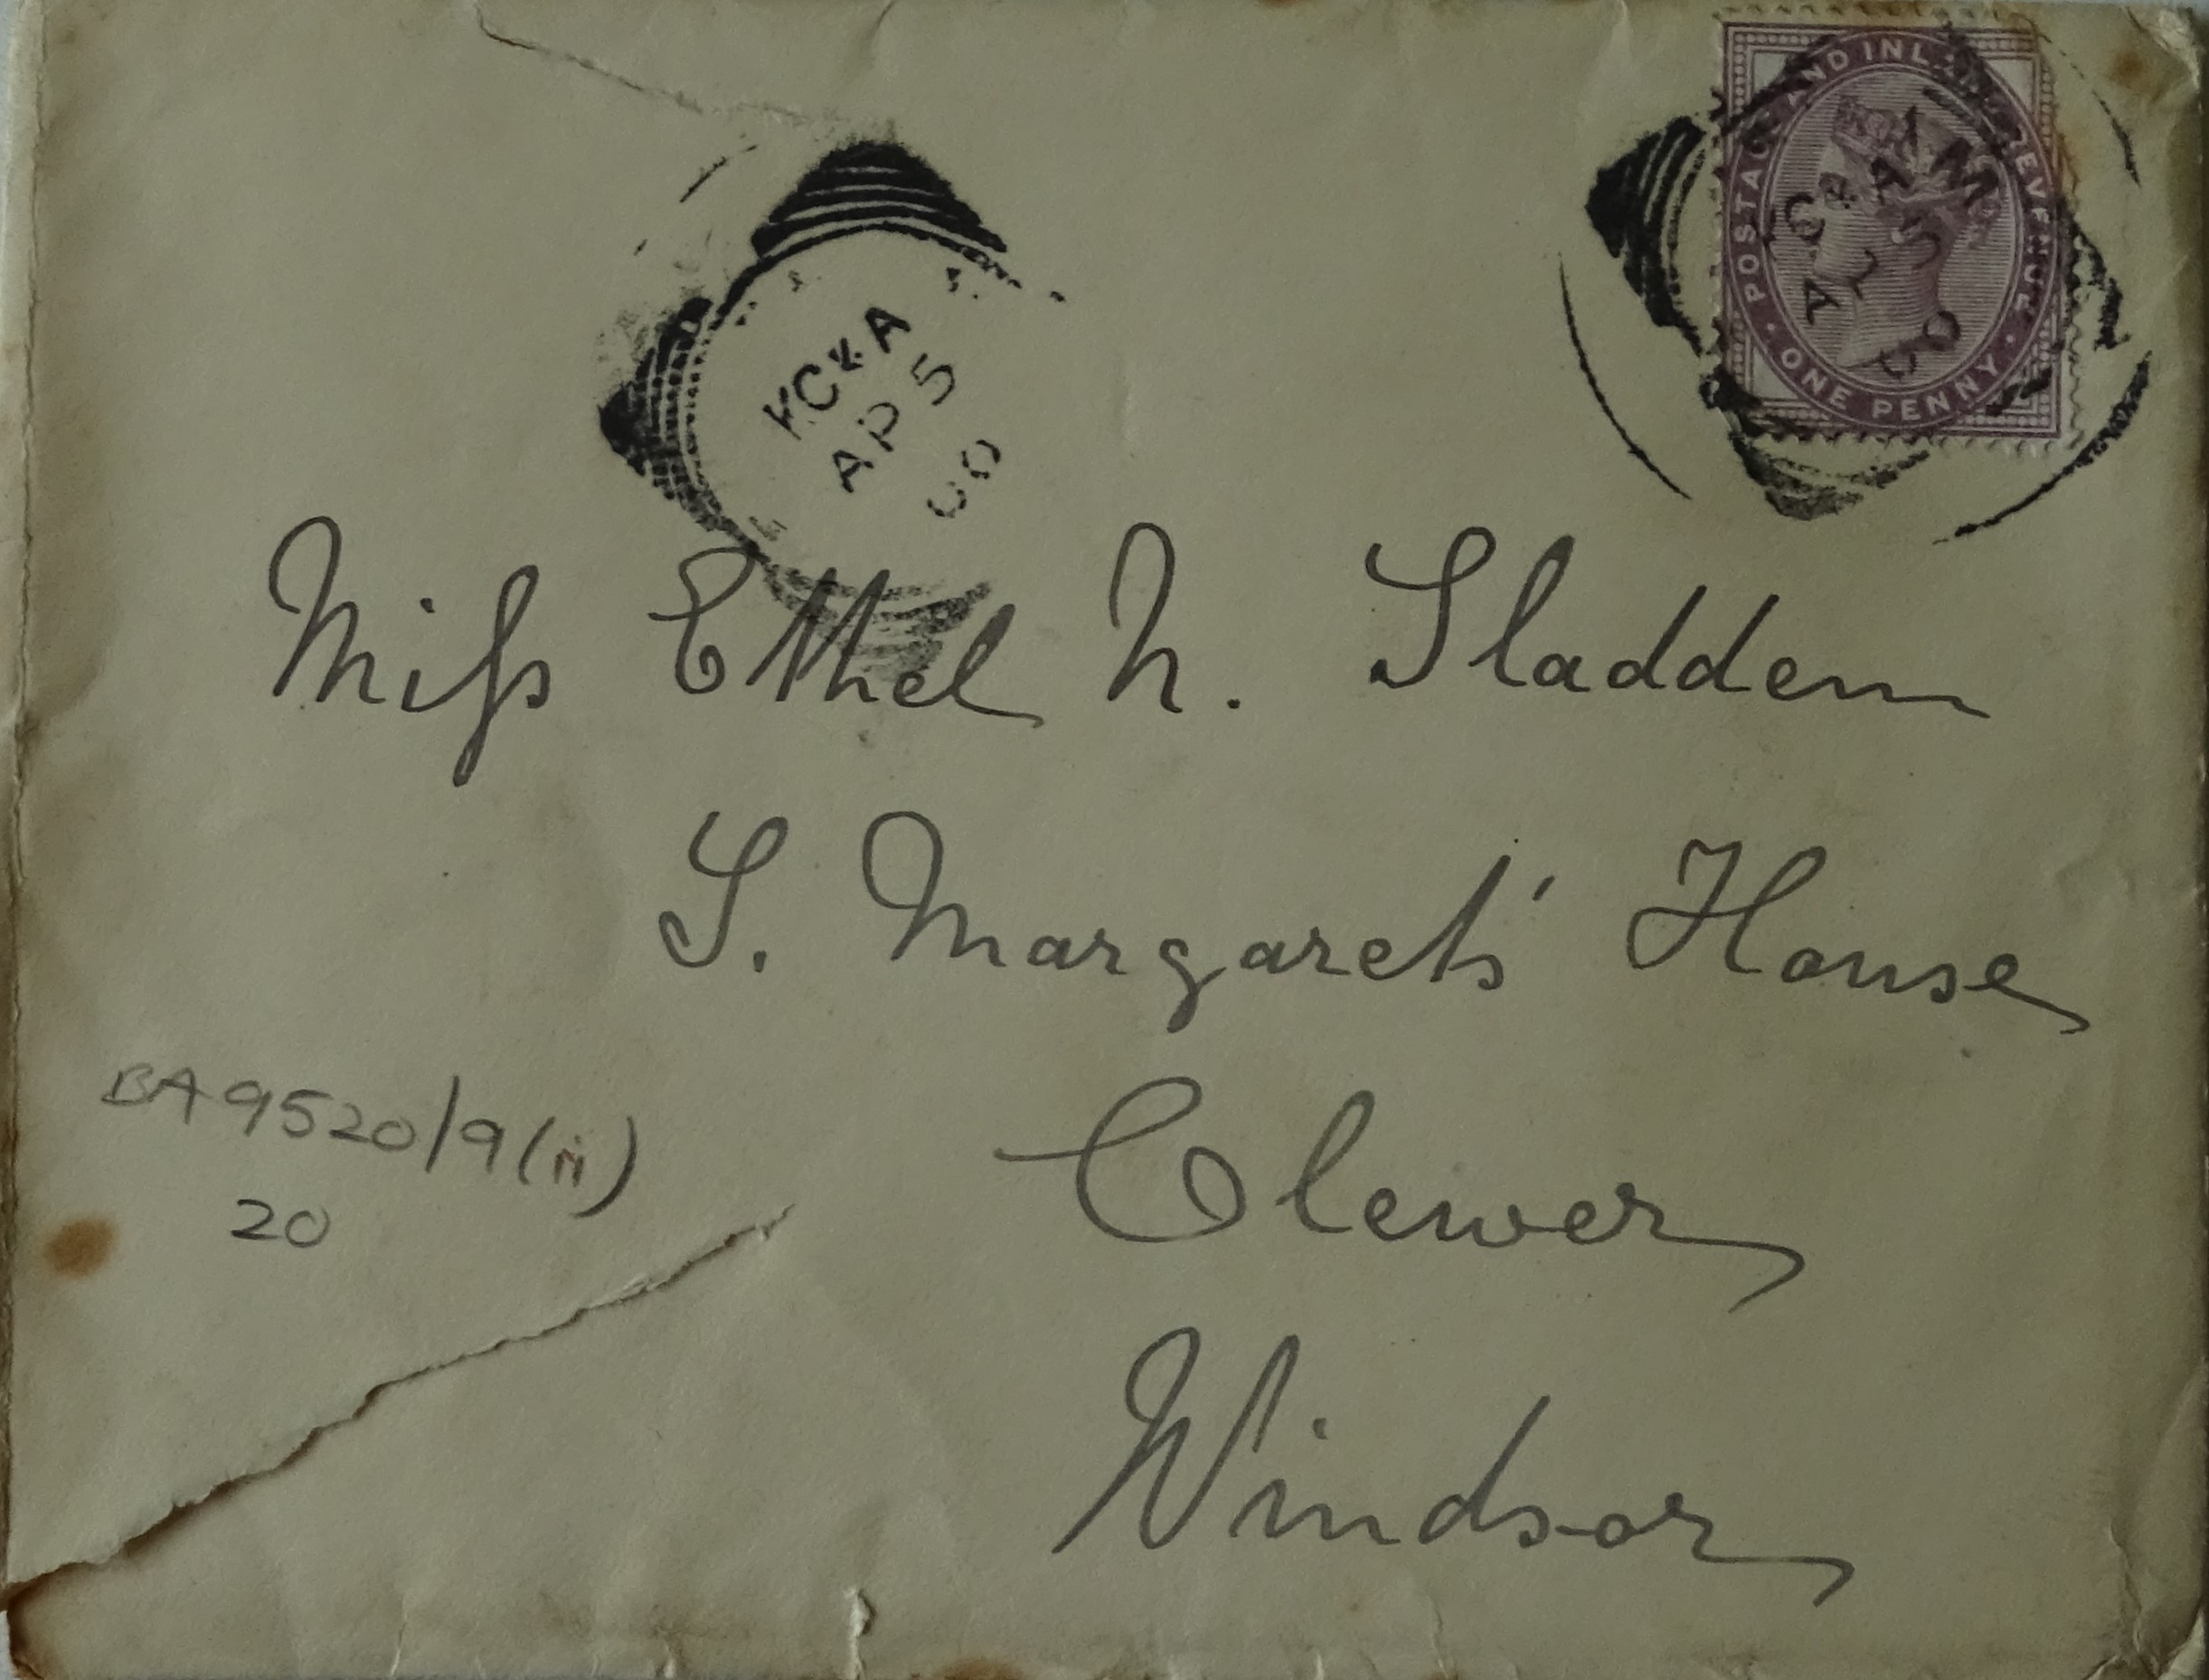 POSTAGE AND INLAND REVENUE
ONE PENNY
KC&A
AP 5
00
Miss Ethel N. Sladden
S. Margarets' House
Clewer
Windsor
BA9520/9(ii)
20